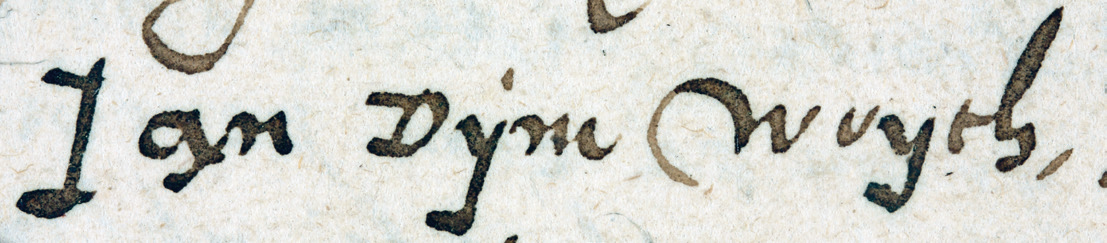 Jan Dym Woyth,